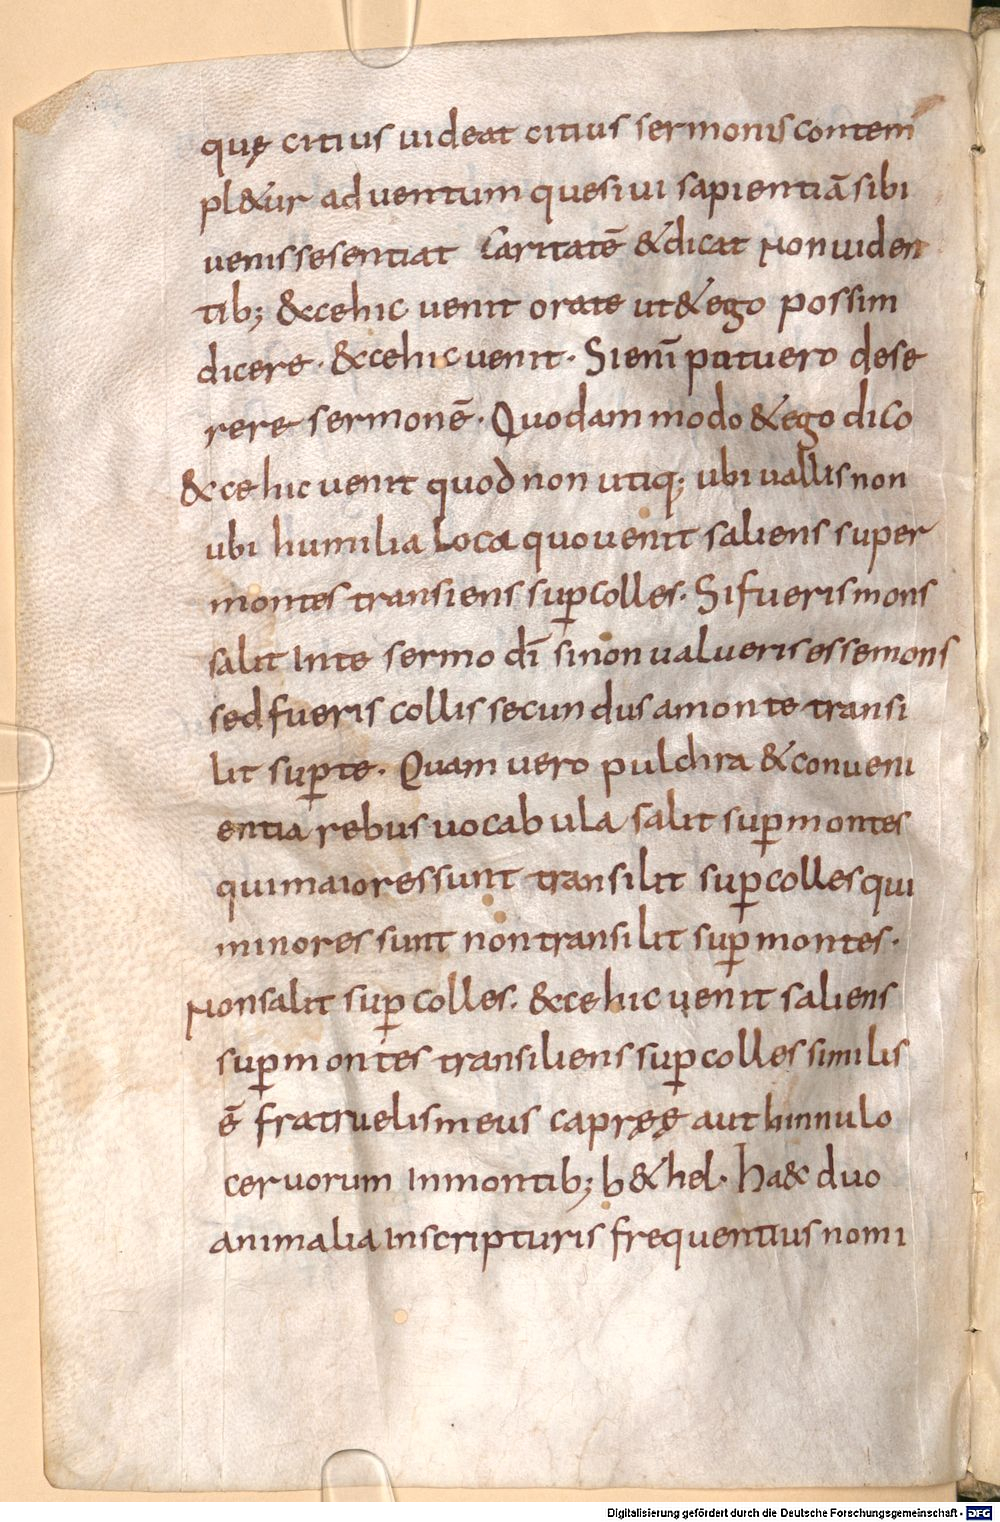 quę citius uideat citius sermonis contem
pl&ur aduentum quesiui sapientiā sibi
uenisse sentiat Caritatē &dicat Non uiden
tib; &ce hic uenit orate ut &ego possim
dicere · &ce hic uenit · Si enī potuero dese
rere sermonē · Quodammodo &ego dico
&ce hic uenit quod non utiq; ubi uallis non
ubi humilia loca quo uenit saliens super
montes transiens sup colles · Si fueris mons
salit In te sermo dī si non ualueris esse mons
sed fueris collis secundus a monte transi
lit sup te · Quam uero pulchra &conueni
entia rebus uocabula salit sup montes
qui maiores sunt transilit sup colles qui
minores sunt non transilit sup montes ·
Non salit sup colles · &ce hic uenit saliens
sup montes transiliens sup colles similis
ē fratruelis meus capręę aut hinnulo
ceruorum In montib; b&hel · ha&c duo
animalia In scripturis frequentius nomi
Digitalisierung gefördert durch die Deutsche Forschungsgemeinschaft - DFG